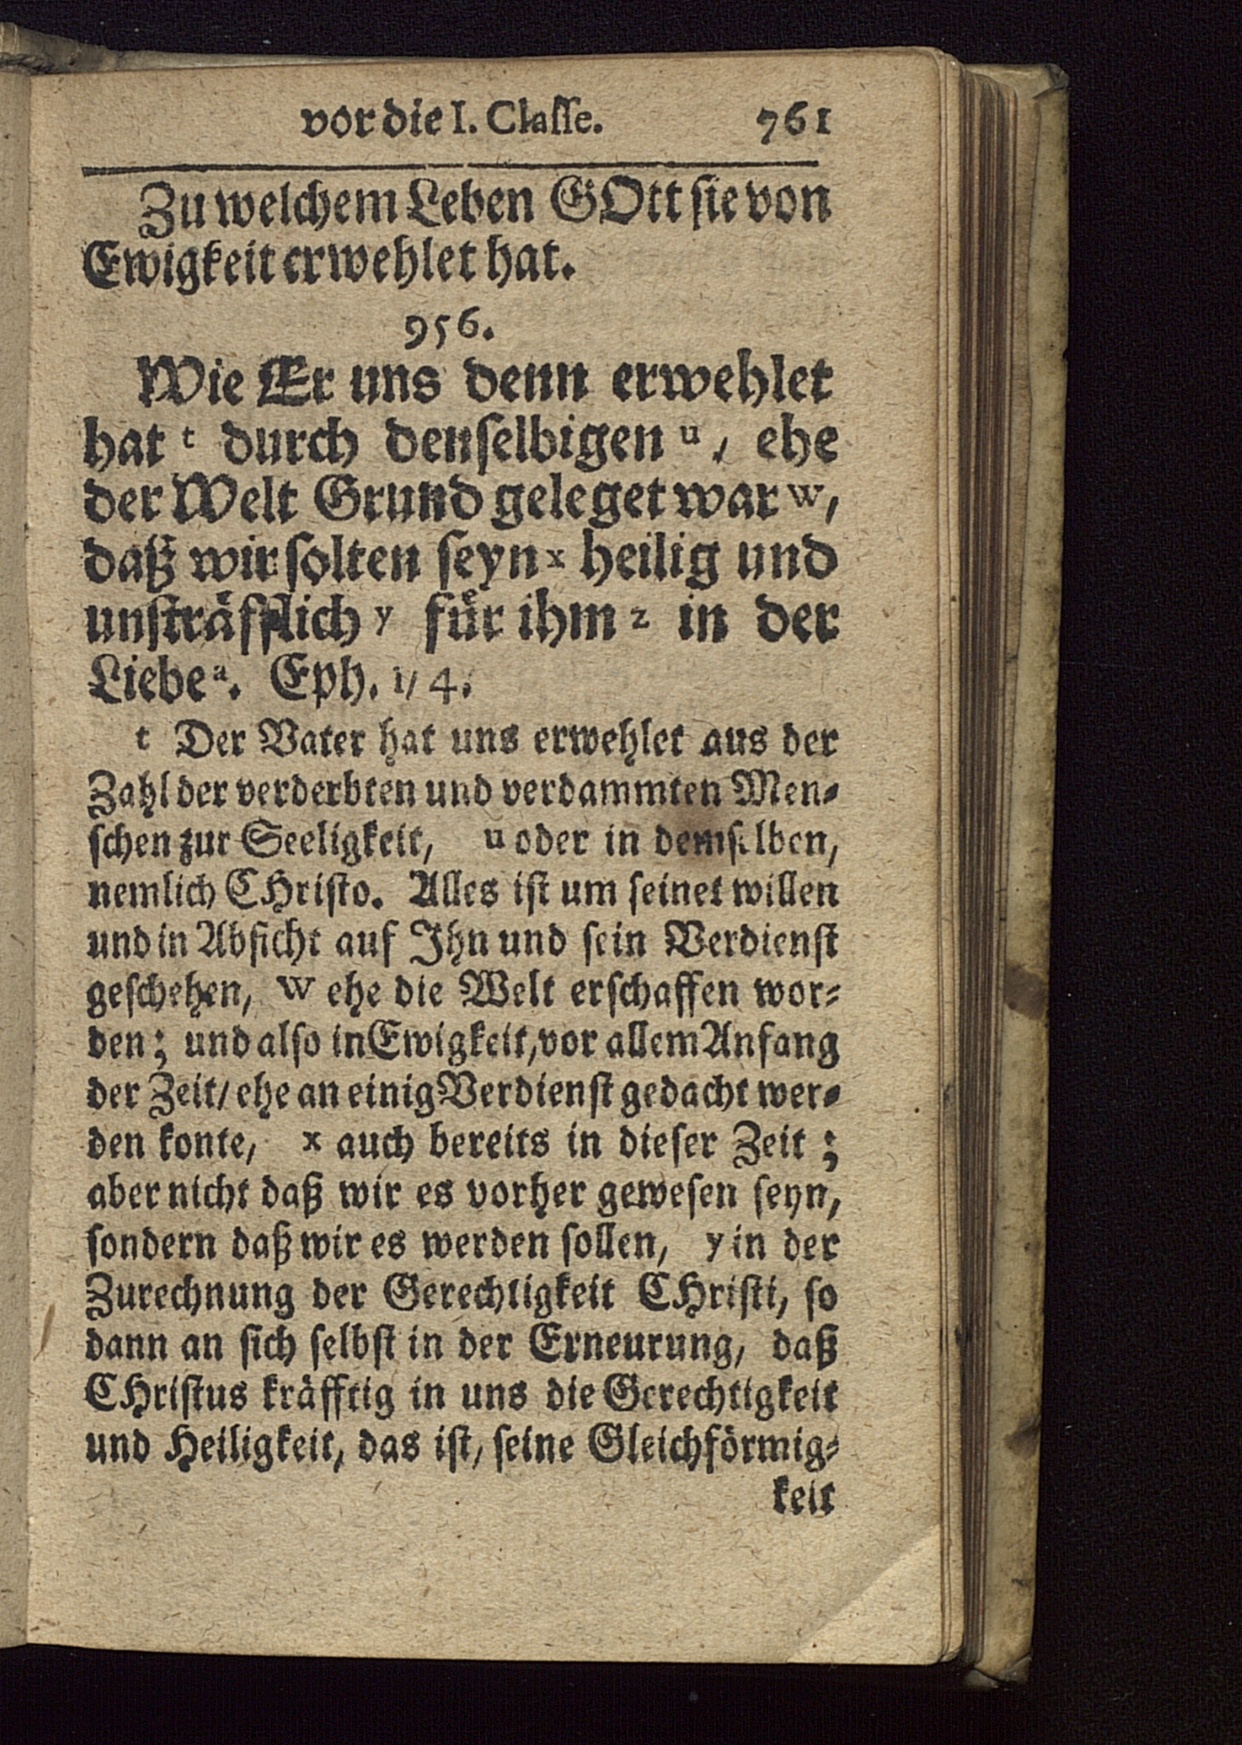 vor die I. Classe. 761
Zu welchem Leben GOtt sie von
Ewigkeit erwehlet hat.
956.
Wie Er uns denn erwehlet
hat t durch denselbigen u, ehe
der Welt Grund geleget war w,
daß wir solten seyn x heilig und
unsträfflich y für ihm z in der
Liebe a. Eph. 1/ 4.
t Der Vater hat uns erwehlet aus der
Zahl der verderbten und verdammten Men-
schen zur Seeligkeit, u oder in demselben,
nemlich CHristo. Alles ist um seinet willen
und in Absicht auf Ihn und sein Verdienst
geschehen, w ehe die Welt erschaffen wor-
den; und also in Ewigkeit, vor allem Anfang
der Zeit/ ehe an einig Verdienst gedacht wer-
den konte, x auch bereits in dieser Zeit;
aber nicht daß wir es vorher gewesen seyn,
sondern daß wir es werden sollen, y in der
Zurechnung der Gerechtigkeit CHristi, so
dann an sich selbst in der Erneurung, daß
CHristus kräfftig in uns die Gerechtigkeit
und Heiligkeit, das ist, seine Gleichförmig-
keit